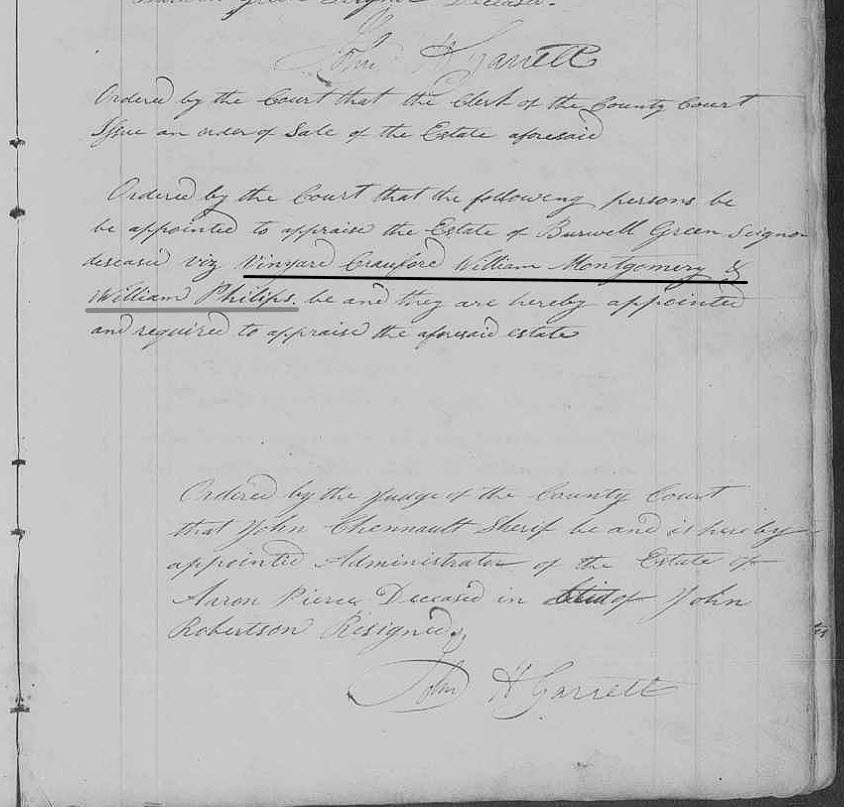 Deceased.
John H Garrett
Ordered by the Court that the Clerk of the County Court
Issue an order of Sale of the Estate aforesaid
Ordered by the Court that the following persons be
be appointed to appraise the Estate of Burwell Green Seigno
deceasd viz Vinyard Crauford William Montgomery &
William Philips be and they are hereby appointed
and required to appraise the aforesaid estate
Ordered by the judge of the County Court
that John Chennault Sherif be and is hereby
appointed Administrator of the Estate of
Aaron Pierce Deceased in of John
Robertson Resigned
John H Garrett